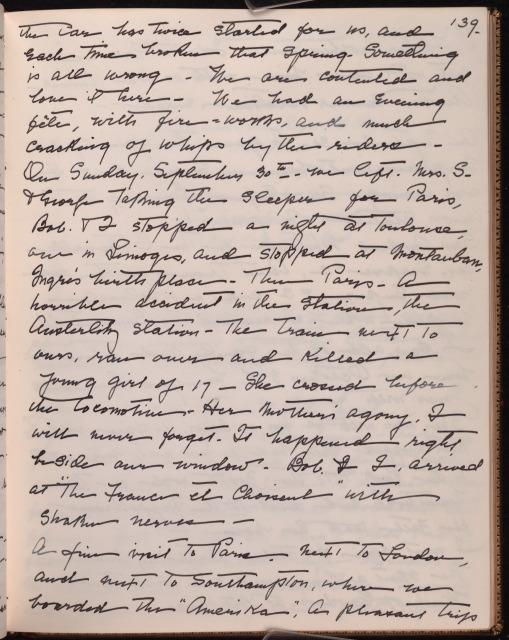 139.
the Car has twice started for us, and
each time broken that spring. Something
is all wrong - We are contented and
love it here - We had an Evening
fête, with fire-works, and much
cracking of whips by the riders -
On Sunday. September 30th - we left. Mrs. S-
& George taking the sleeper for Paris,
Bob. & I stopped a night at Toulouse,
one in Limoges, and stopped at Montauban,
Ingres birth place - Then Paris - A
horrible accident in the station, the
Austerlitz station - The train next to
ours, ran over and killed a
young girl of 17 - She crossed before
the locomotive - Her Mother's agony, I
will never forget. It happened right
beside our window - Bob. & I. arrived
at "The France et Choiseul" with
shaken nerves -
A fine visit to Paris. next to London,
and next to Southampton, where we
boarded the "Amerika". A pleasant trip